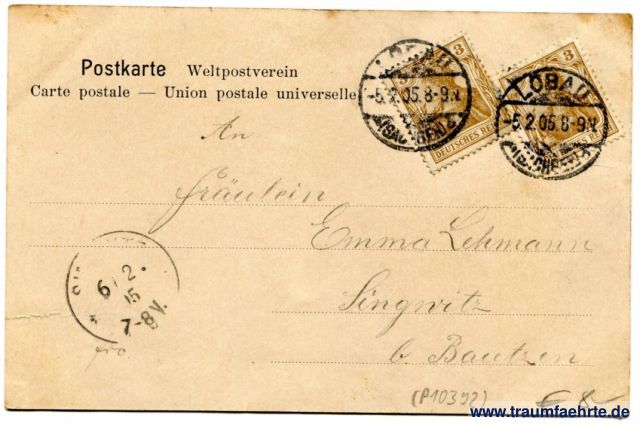 Postkarte Weltpostverein
Carte postale — Union postale universelle
3
DEUTSCHES REI
LÖBAU
-5.2.05.8-9.N
3
LÖBAU
-5.2.05.8-9.N
An
Fräulein
Emma Lehmann
Singwitz
b. Bautzen
6/2.
7-8V.
(P10392)
€ 8-
www.traumfaehrte.de